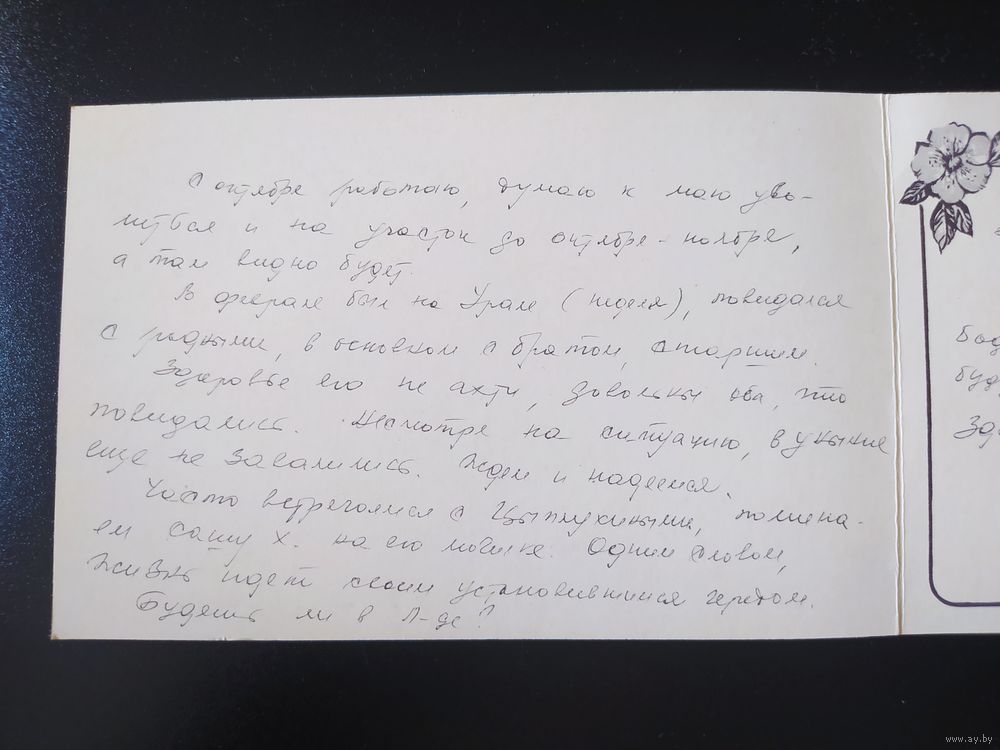 С октября работаю, думаю к маю уво-
литься и на участок до октября-ноября,
а там видно будет.
В феврале был на Урале (неделя), повидался
с родными, в основном с братом, старшим.
Здоровье его не ахти, довольны оба, что
повидались. Несмотря на ситуацию, в уныние
еще не завалились. Ждем и надеемся.
Часто встречаемся с Цыплухиными, помина-
ем Сашу Х. на его могилке. Одним словом,
жизнь идет своим установившимся чередом.
Будешь ли в Л-де?
Зд
буд
www.ay.by